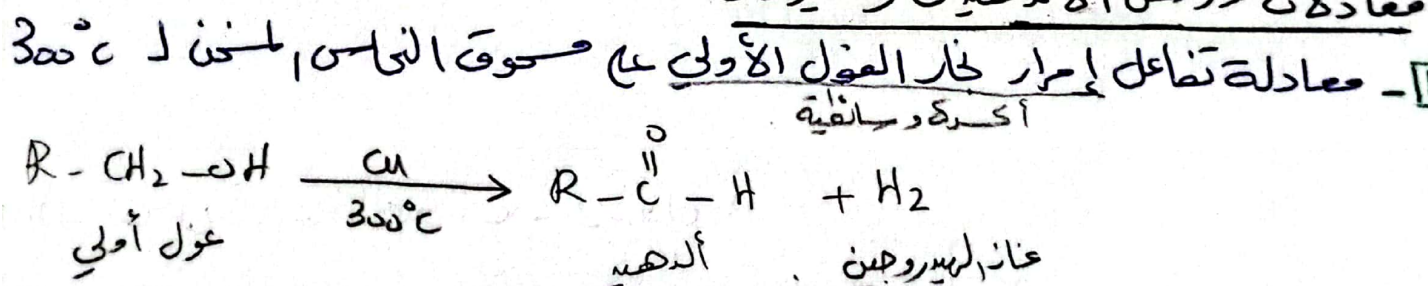 معادلة تفاعل إمرار بخار الغول الأولي على مسحوق النحاس المسخن لـ 300°C
أكسدة وساطية
R - CH₂ - OH —Cu / 300°C→ R - C(=O) - H + H₂
غول أولي ألدهيد غاز الهيدروجين